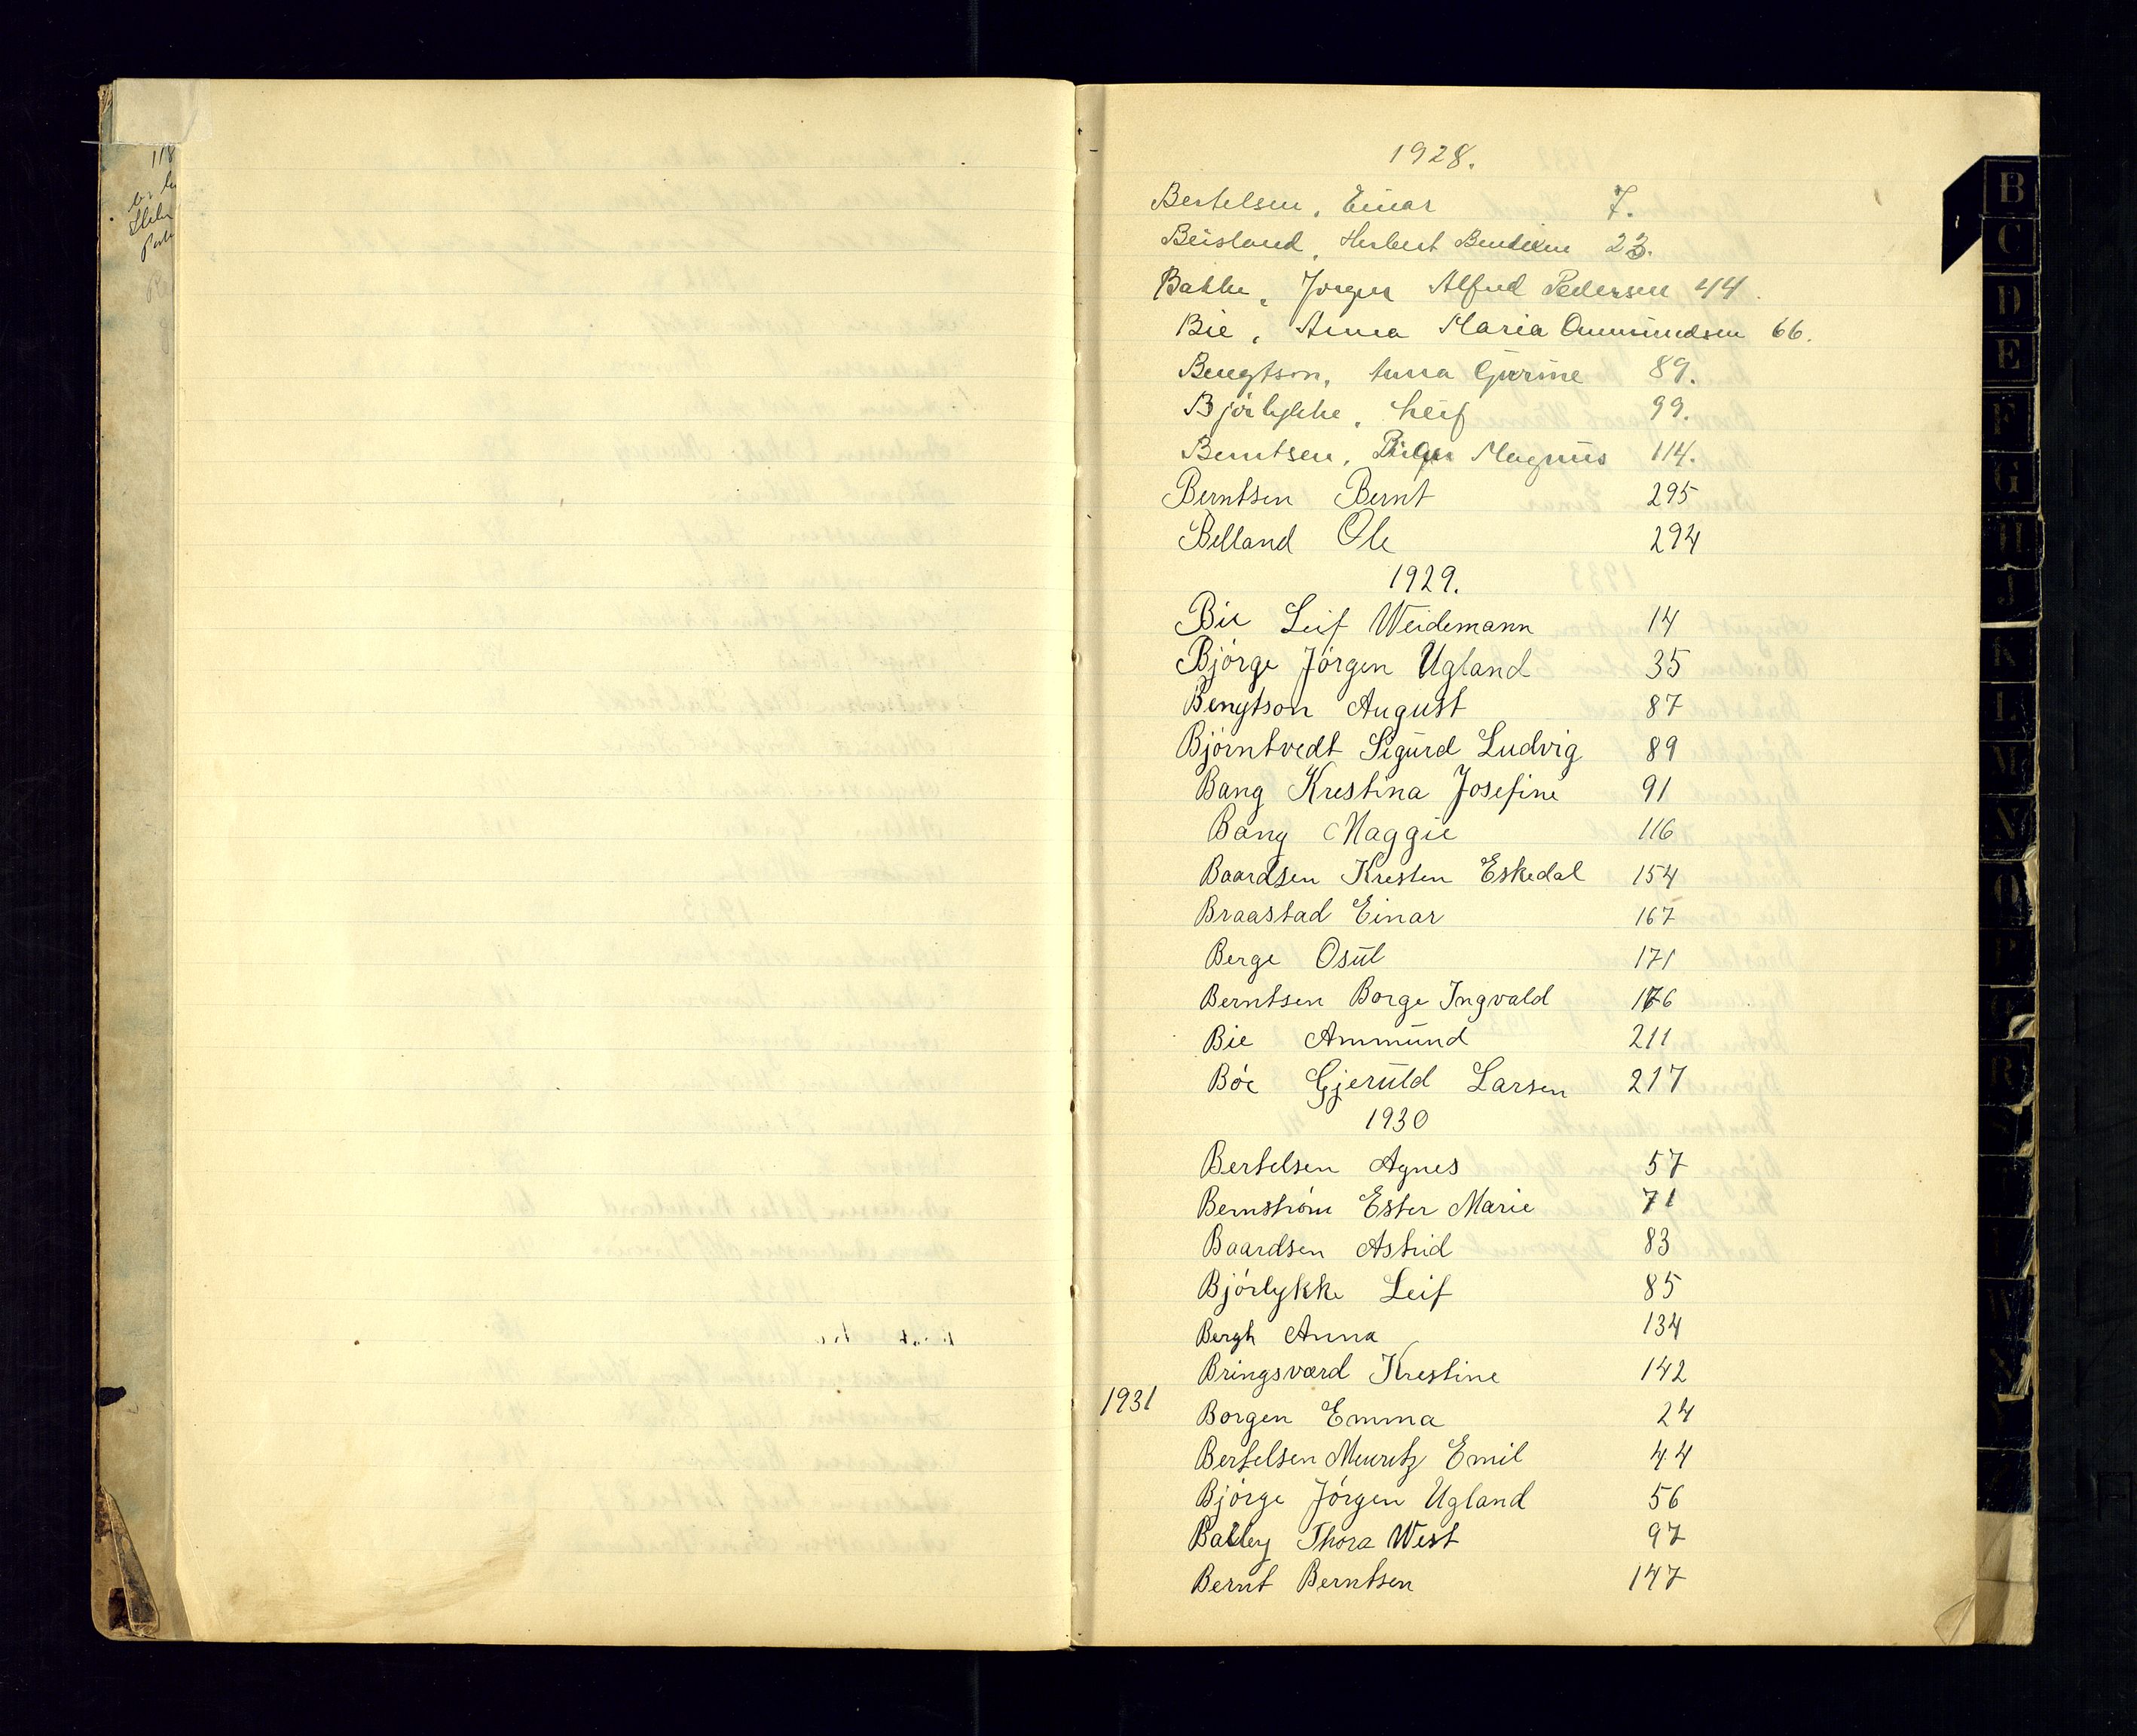 118
1928.
Bertelsen, Einar 7.
Beisland, Herbert Bendixen 23.
Bakke, Jørgen Alfred Pedersen 44.
Bie, Anna Maria Ommundsen 66.
Bengtson, Anna Gurine 89.
Bjørlykke, Leif 99.
Berntsen, Birger Magnus 114.
Berntsen Bernt 295
Belland Ole 294
1929.
Bie Leif Weidemann 14
Bjórge Jórgen Ugland 35
Bengtson August 87
Bjórntvedt Sigurd Ludvig 89
Bang Krestina Josefine 91
Bang Maggie 116
Baardsen Kresten Eskedal 154
Braastad Einar 167
Berge Osul 171
Berntsen Borge Ingvald 176
Bie Ammund 211
Bóe Gjeruld Larsen 217
1930
Bertelsen Agnes 57
Bernstróm Ester Marie 71
Baardsen Astrid 83
Bjórlykke Leif 85
Bergh Anna 134
Bringsværd Krestine 142
1931 Borgen Emma 24
Bertelsen Emil 44
Bjórge Jórgen Ugland 56
Thora West 97
Bernt Berntsen 147
B
C
D
E
F
G
H
J
K
L
M
N
O
P
R